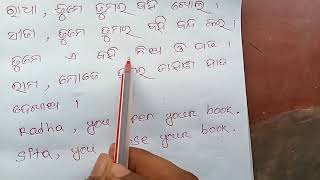 ରାଧା, ତୁମେ ତୁମର ବହି ଖୋଲ।
ସୀତା, ତୁମେ ତୁମର ବହି ବନ୍ଦ କର।
ତୁମେ ଏ ବହି ନିଅ ଓ ପଢ଼।
ରାମ, ମୋତେ ତୁମର
ଦେଖାଅ।
Radha, you open your book.
Sita, you your book.